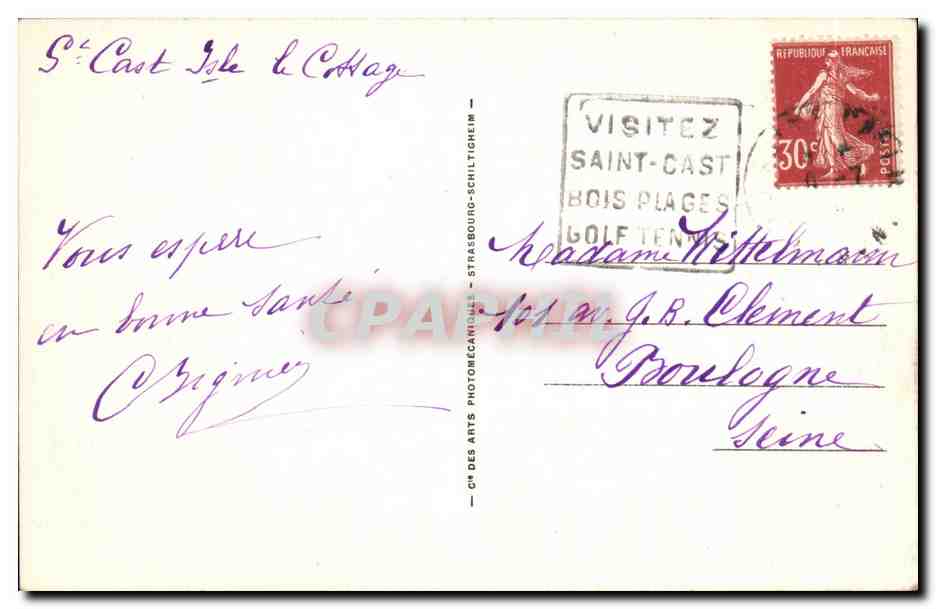 St Cast Isle le Cottage
Vous espère
en bonne santé
VISITEZ
SAINT-CAST
BOIS PLAGES
GOLF TENNIS
REPUBLIQUE FRANÇAISE
30c
POSTES
Madame Wittelmann
101 av. J.B. Clément
Boulogne
Seine
— Cie DES ARTS PHOTOMÉCANIQUES - STRASBOURG-SCHILTIGHEIM —
CPAPHIL